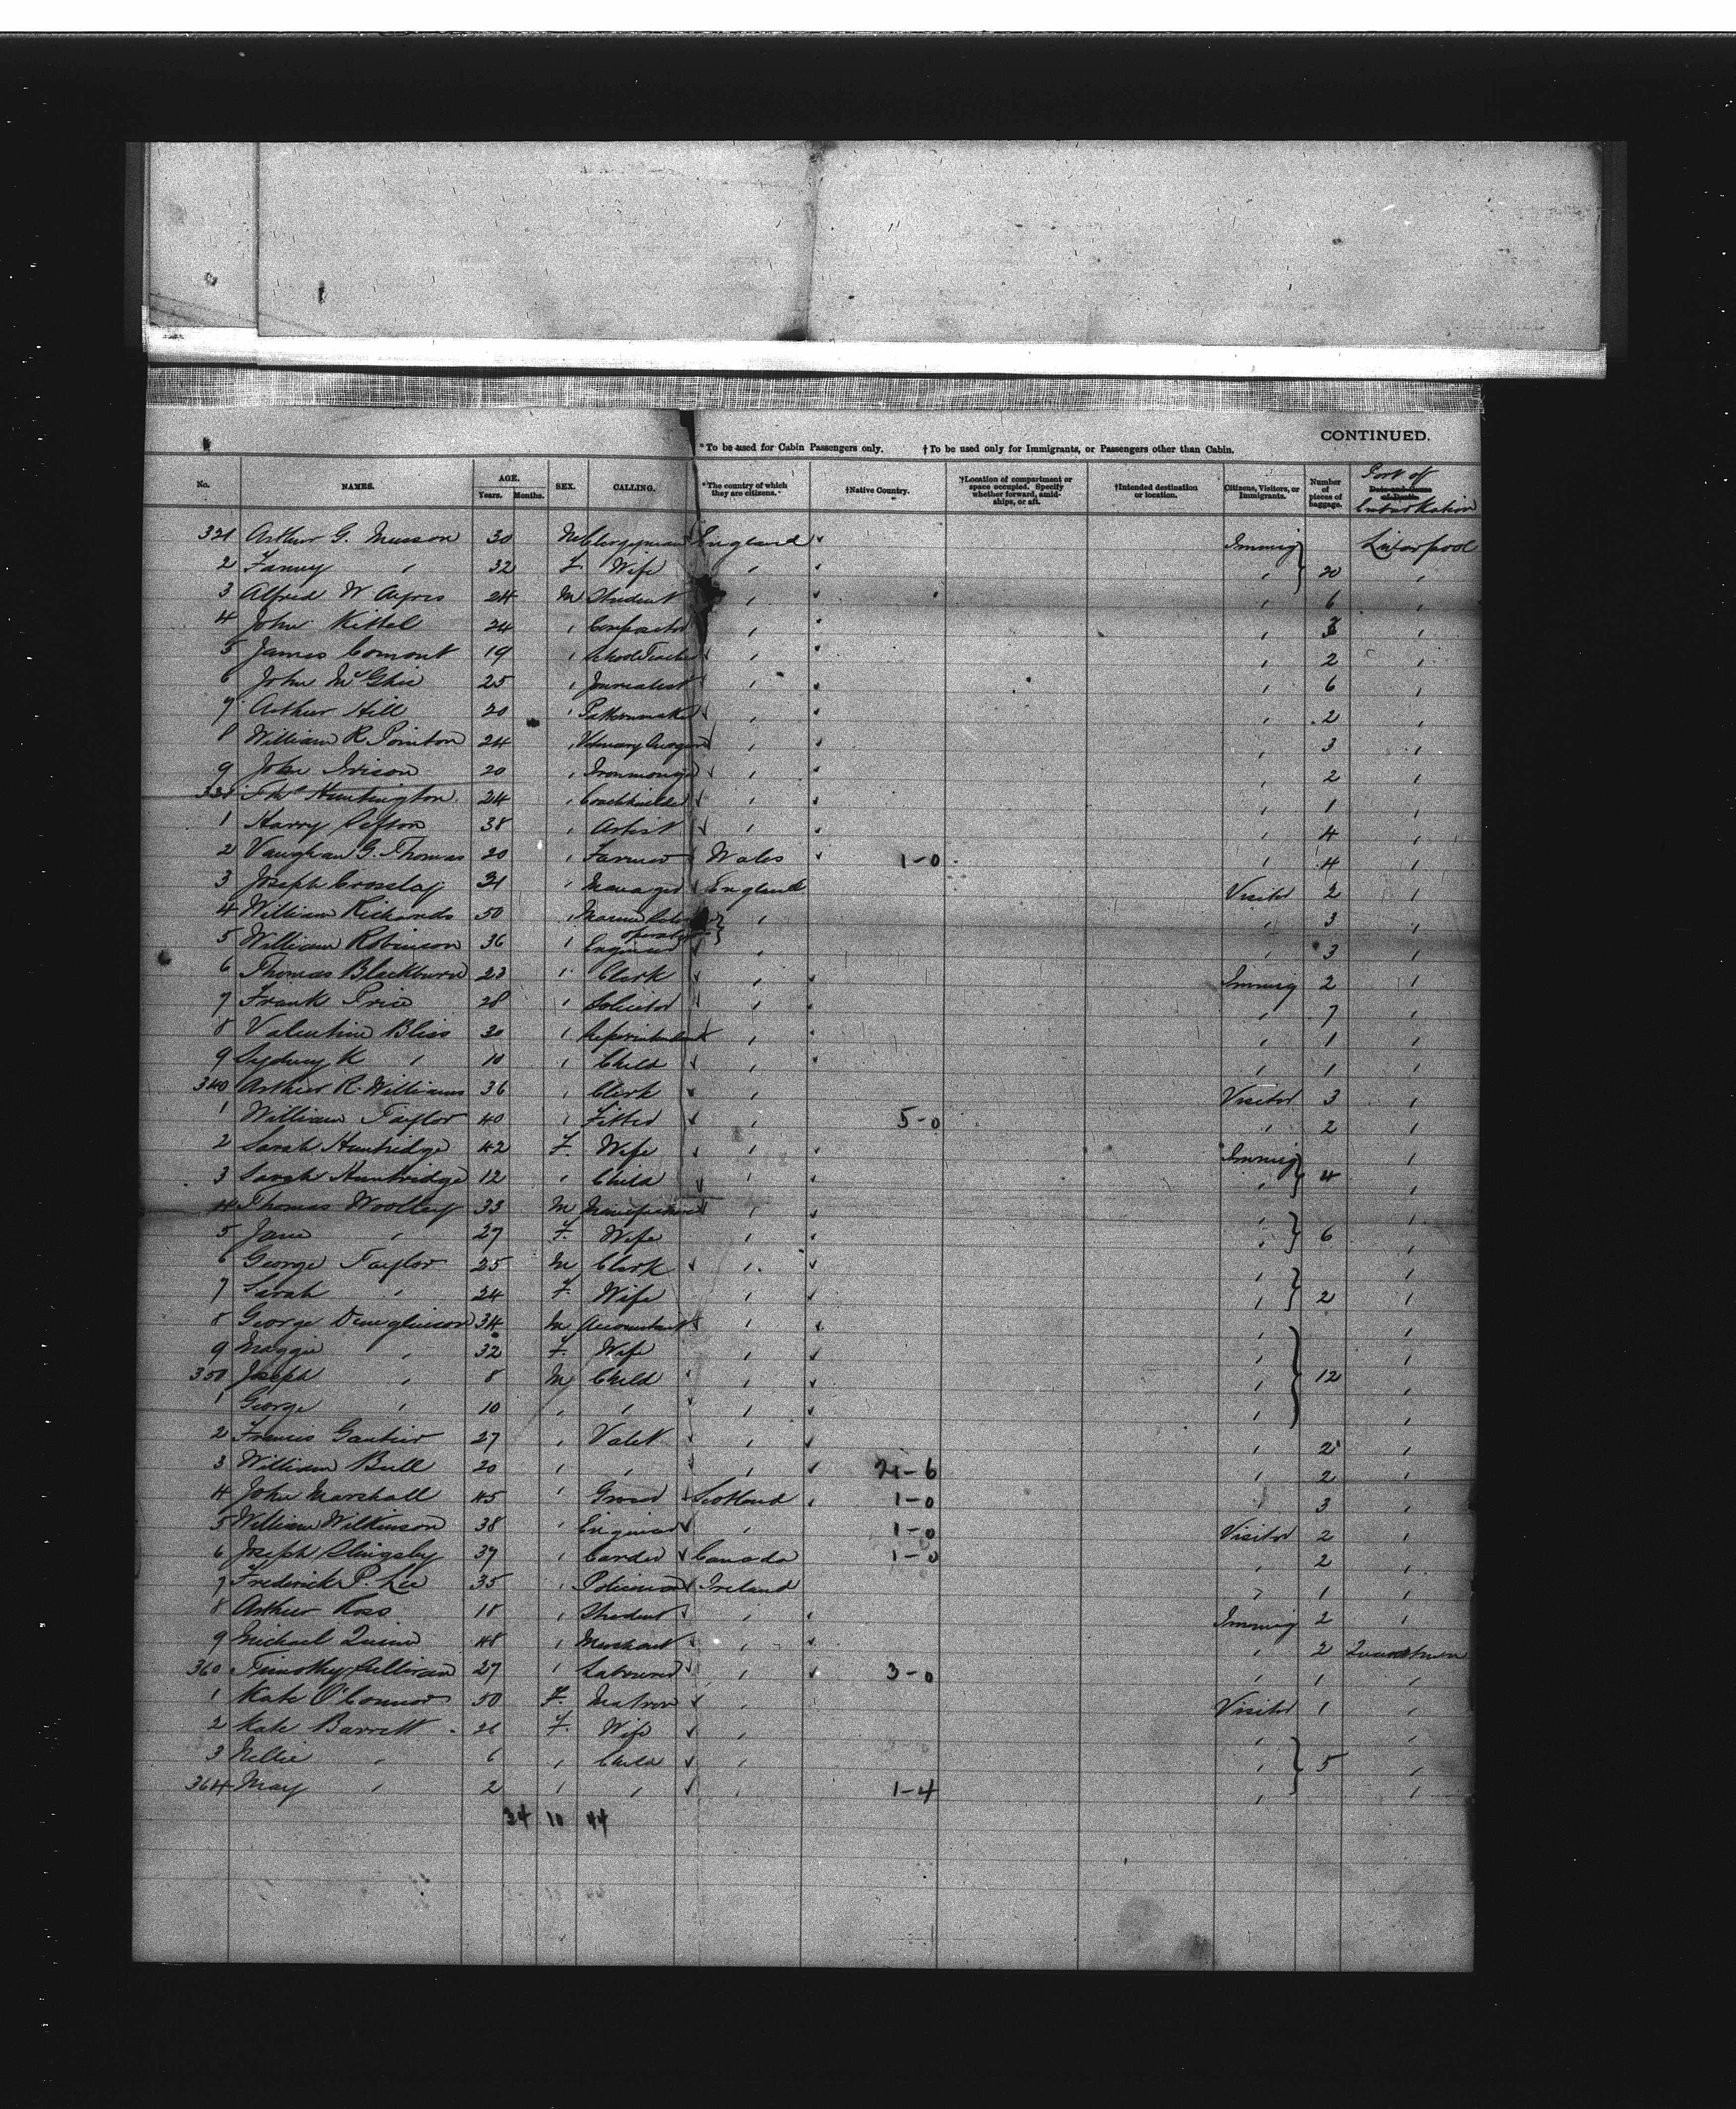 CONTINUED.
*To be used for Cabin Passengers only. †To be used only for Immigrants, or Passengers other than Cabin.
No. NAMES. AGE. Years. Months. SEX. CALLING. *The country of which they are citizens. †Native Country. †Location of compartment or space occupied. Specify whether forward, amidships, or aft. †Intended destination or location. Citizens, Visitors, or Immigrants. Number of pieces of baggage. Port of Embarkation
321 Arthur G. Musson 30 M Clergyman England Immig Liverpool
2 Fanny " 32 F Wife " " 20 "
3 Alfred W Ayres 24 M Student " " 6 "
4 John Kittel 24 " Compositor " " "
5 James Comont 19 " School Teacher " " 2 "
6 John McGhie 25 " Journalist " " 6 "
7 Arthur Hill 20 " Patternmaker " " 2 "
8 William R Pointon 24 " Veterinary Surgeon " " 3 "
9 John Ivison 20 " Ironmonger " " 2 "
330 Huntington 24 " Coachbuilder " " 1 "
1 Harry Sefton 38 " Artist " " 4 "
2 Vaughan G. Thomas 20 " Farmer Wales 1-0 " 4 "
3 Joseph Crossley 31 " Manager England Visitor 2 "
4 William Richards 50 " operator " " 3 "
5 William Robinson 36 " Engineer " " 3 "
6 Thomas Blackburn 23 " Clerk " Immig 2 "
7 Frank Price 28 " Solicitor " " 7 "
8 Valentine Bliss 30 " Superintendent " " 1 "
9 Sydney K " 10 " Child " " 1 "
340 Arthur R. Williams 36 " Clerk " Visitor 3 "
1 William Taylor 40 " Fitter " 5-0 " 2 "
2 Sarah Huntridge 42 F. Wife " Immig "
3 Sarah Huntridge 12 " Child " " 4 "
4 Thomas Woolley 33 M Manufacturer " " "
5 Jane " 27 F. Wife " " 6 "
6 George Taylor 25 M Clerk " " "
7 Sarah " 24 F. Wife " " 2 "
8 George Dunglinson 34 M Accountant " " "
9 Maggie " 32 F. Wife " " "
350 Joseph " 8 M Child " " 12 "
1 George " 10 " " " " "
2 Francis Gautier 27 " Valet " " 2 "
3 William Bull 20 " " " 21-6 " 2 "
4 John Marshall 45 " Scotland 1-0 " 3 "
5 William Wilkinson 38 " Engineer " 1-0 Visitor 2 "
6 Joseph Slingsby 37 " Carder Canada 1-0 " 2 "
7 Frederick P. Lee 35 " Policeman Ireland " 1 "
8 Arthur Ross 18 " Student " Immig 2 "
9 Michael Quinn 48 " Merchant " " 2 Queenstown
360 Timothy Sullivan 27 " Labourer " 3-0 " 1 "
1 Kate O'Connor 50 F. Matron " Visitor 1 "
2 Kate Barrett 26 F. Wife " " "
3 Nellie " 6 " Child " " 5 "
364 May " 2 " " " 1-4 " "
34 10 44